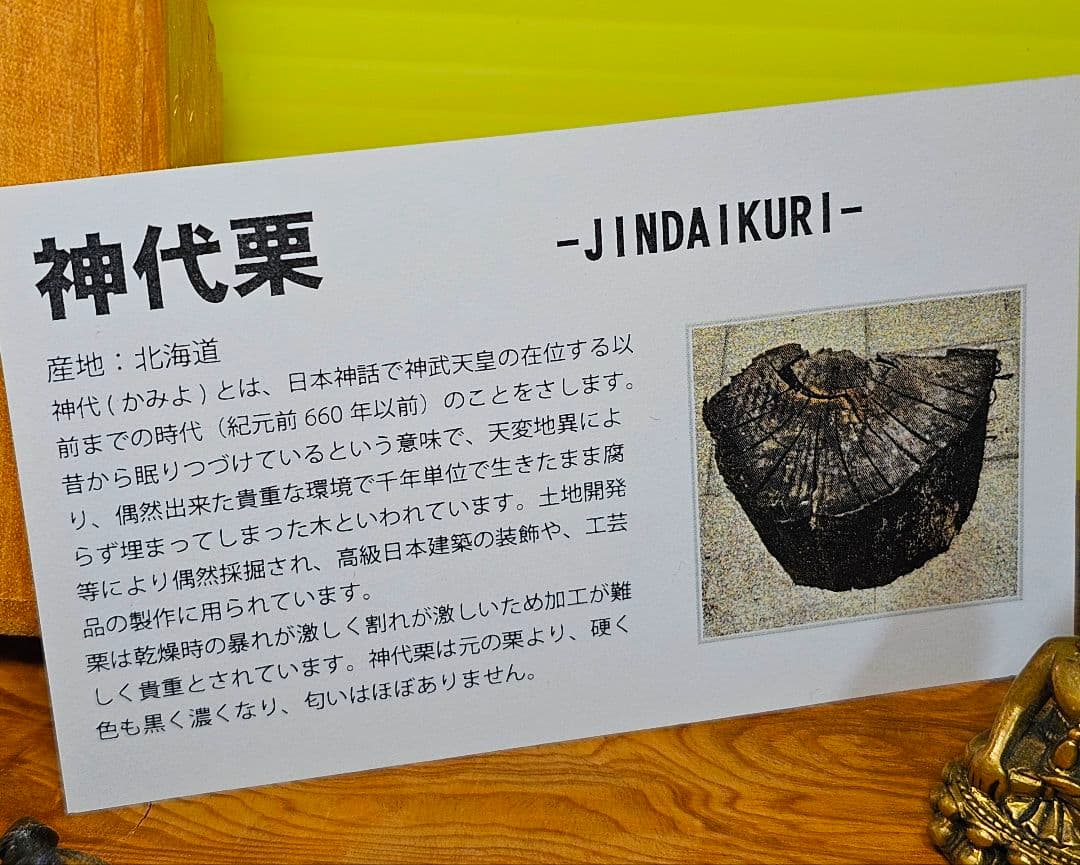 神代栗
-JINDAIKURI-
産地：北海道
神代(かみよ)とは、日本神話で神武天皇の在位する以
前までの時代（紀元前660年以前）のことをさします。
昔から眠りつづけているという意味で、天変地異によ
り、偶然出来た貴重な環境で千年単位で生きたまま腐
らず埋まってしまった木といわれています。土地開発
等により偶然採掘され、高級日本建築の装飾や、工芸
品の製作に用られています。
栗は乾燥時の暴れが激しく割れが激しいため加工が難
しく貴重とされています。神代栗は元の栗より、硬く
色も黒く濃くなり、匂いはほぼありません。